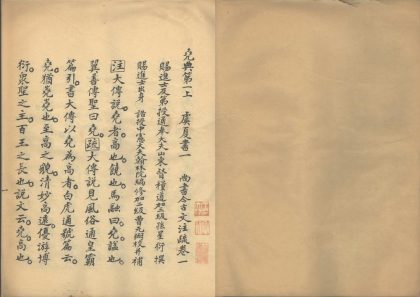 堯典第一上　虞夏書一　尚書今古文注疏卷一
賜進士及第授通奉大夫山東督糧道加三級孫星衍撰
賜進士出身　誥授中憲大夫翰林院編修加級
注大傳說堯者高也饒也馬融曰堯謚也
翼善傳聖曰堯疏大傳說見風俗通皇霸
篇引書大傳以堯為高者白虎通號篇云
堯猶嶢嶢也至高之貌清妙高遠優游博
衍眾聖之主百王之長也說文云堯高也